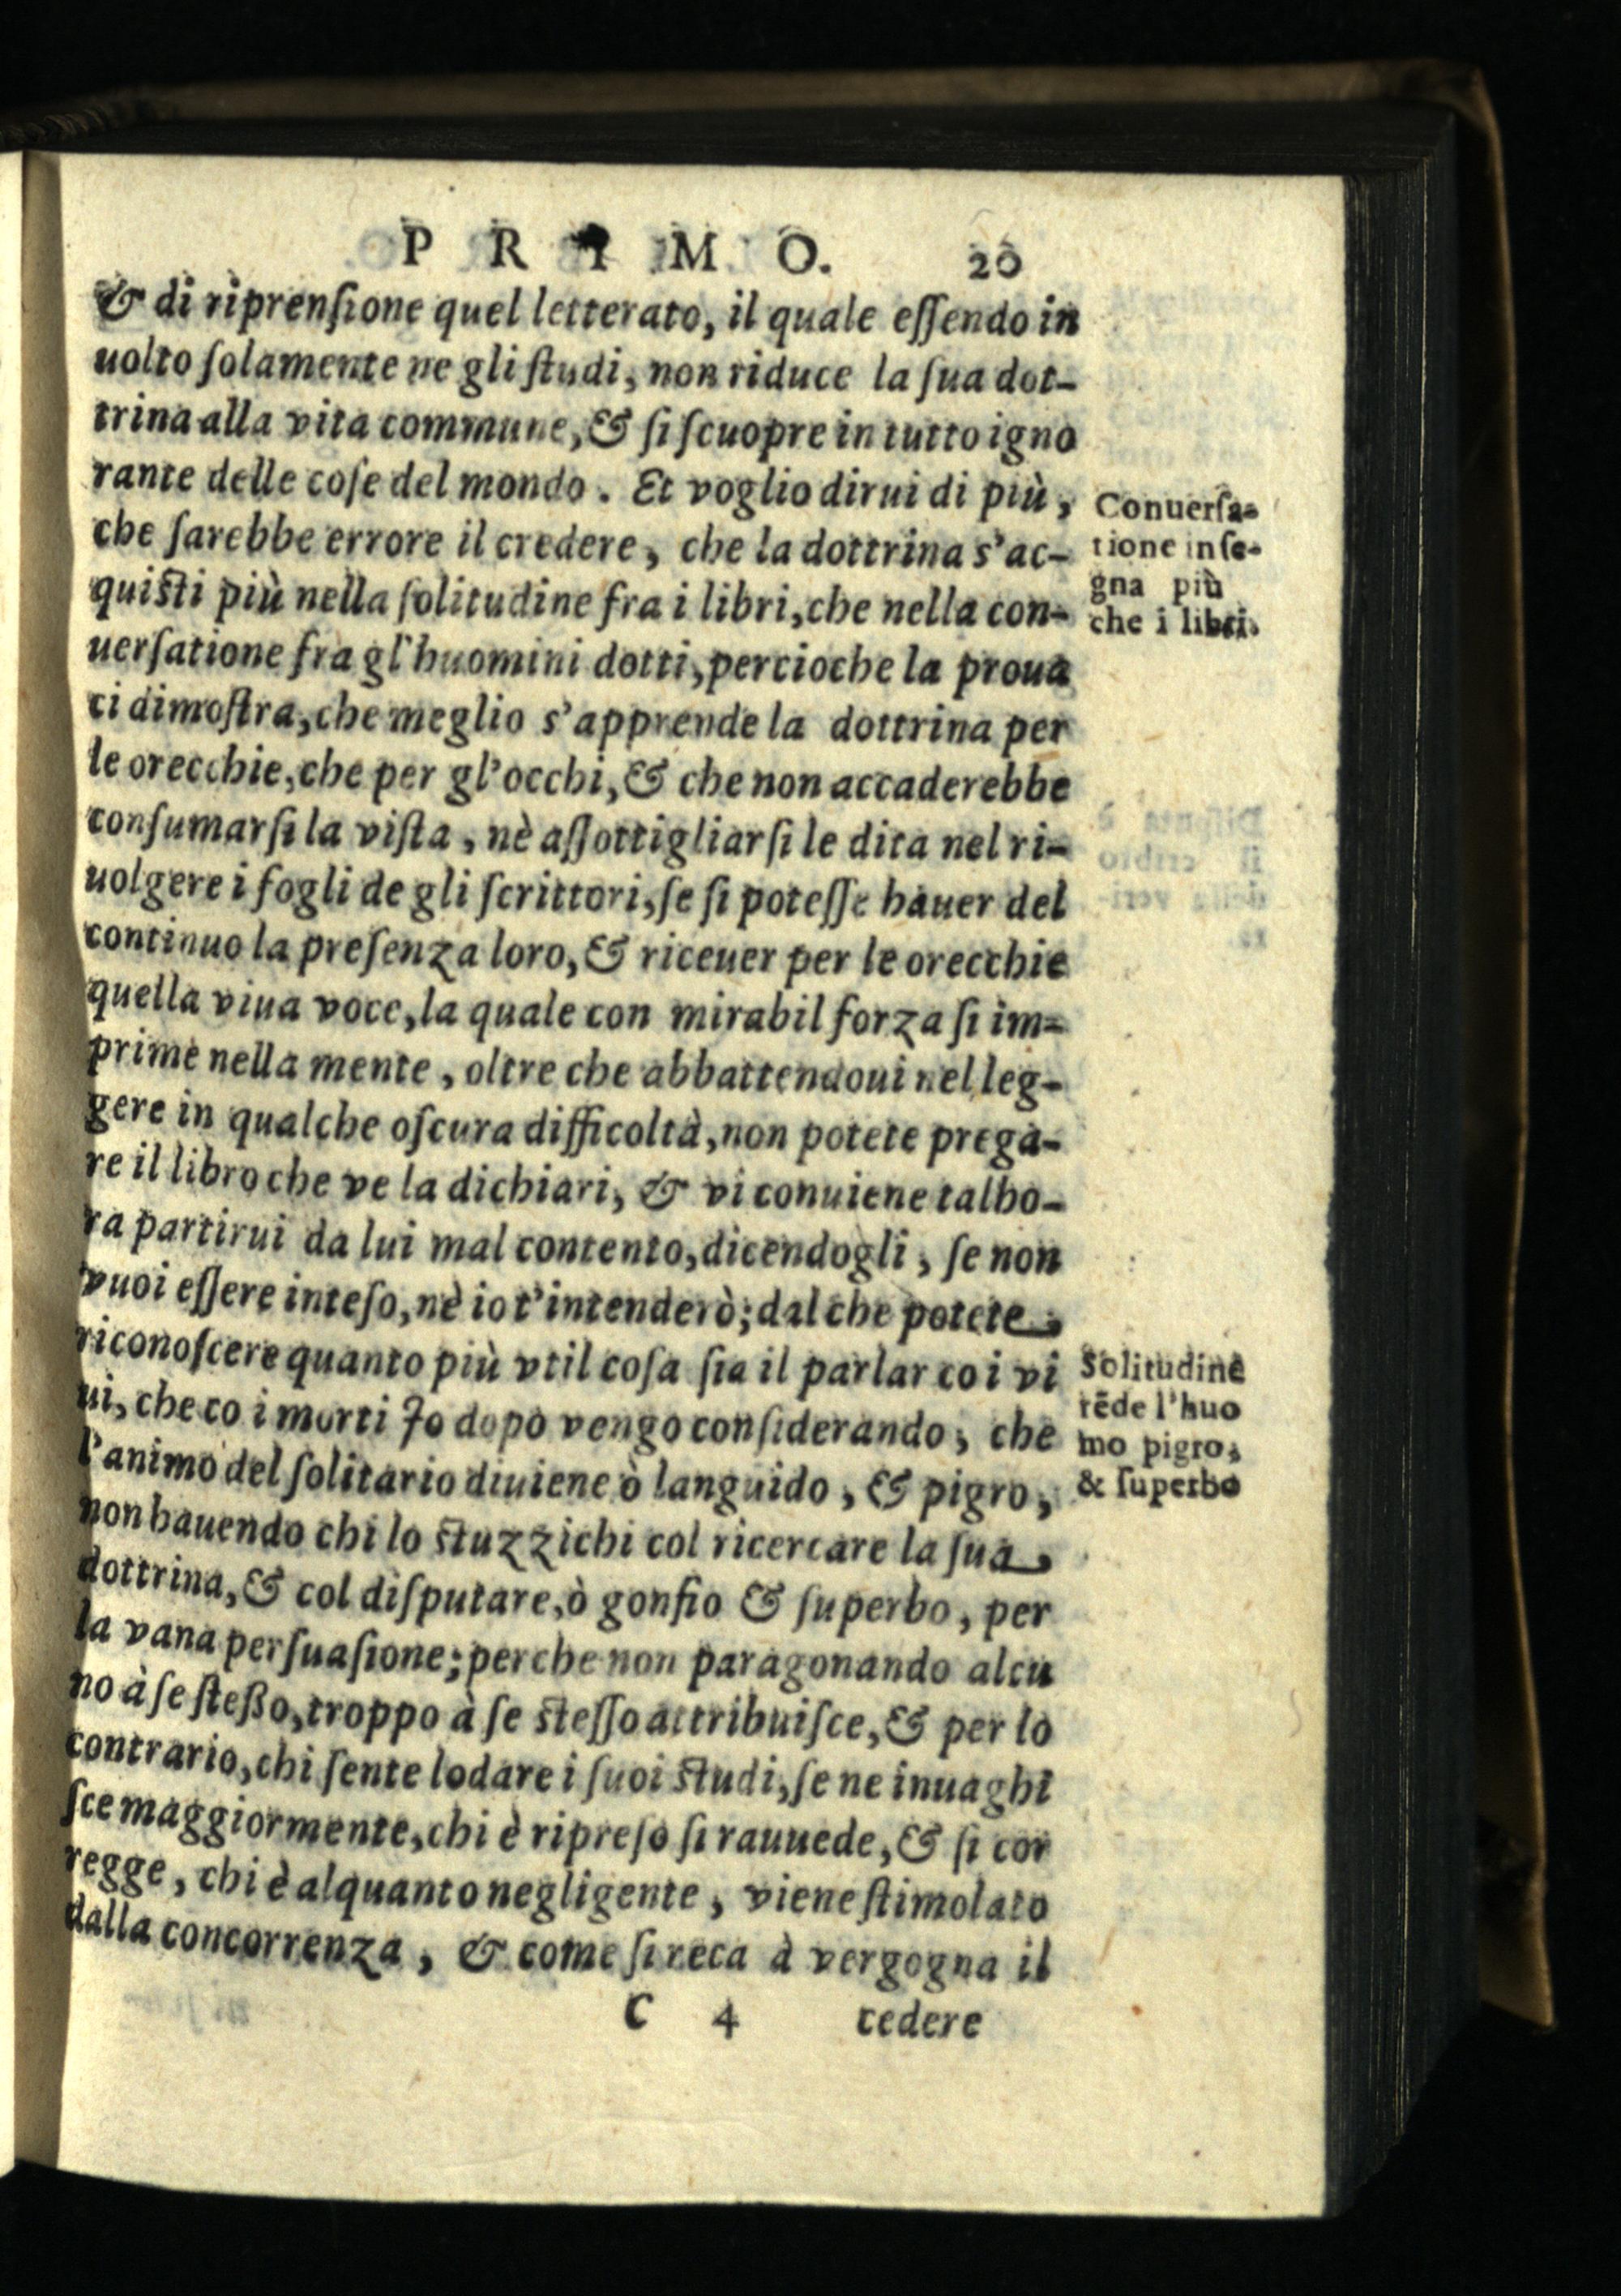 PRIMO. 20
& di riprenſione quel letterato, il quale eſſendo in
uolto ſolamente ne gli ſtudi, non riduce la ſua dot-
trina alla vita commune, & ſi ſcuopre in tutto igno
rante delle coſe del mondo. Et voglio dirui di più,
che ſarebbe errore il credere, che la dottrina s'ac-
quiſti più nella ſolitudine fra i libri, che nella con-
uerſatione fra gl'huomini dotti, percioche la proua
ci dimoſtra, che meglio s'apprende la dottrina per
le orecchie, che per gl'occhi, & che non accaderebbe
conſumarſi la viſta, nè aſſottigliarſi le dita nel ri-
uolgere i fogli de gli ſcrittori, ſe ſi poteſſe hauer del
continuo la preſenza loro, & riceuer per le orecchie
quella viua voce, la quale con mirabil forza ſi im-
prime nella mente, oltre che abbattendoui nel leg-
gere in qualche oſcura difficoltà, non potete prega-
re il libro che ve la dichiari, & vi conuiene talho-
ra partirui da lui mal contento, dicendogli, ſe non
vuoi eſſere inteſo, nè io t'intenderò; dal che potete,
riconoſcere quanto più vtil coſa ſia il parlar co i vi
ui, che co i morti Io dopo vengo conſiderando, che
l'animo del ſolitario diuiene ò languido, & pigro,
non hauendo chi lo ſtuzzichi col ricercare la ſua,
dottrina, & col diſputare, ò gonfio & ſuperbo, per
la vana perſuaſione; perche non paragonando alcu
no à ſe ſteßo, troppo à ſe ſteſſo attribuiſce, & per lo
contrario, chi ſente lodare i ſuoi ſtudi, ſe ne inuaghi
ſce maggiormente, chi è ripreſo ſi rauuede, & ſi cor
regge, chi è alquanto negligente, viene ſtimolato
dalla concorrenza, & come ſi reca à vergogna il
C 4 cedere
Conuerſa-
tione inſe-
gna più
che i libri.
Solitudine
rēde l'huo
mo pigro,
& ſuperbo